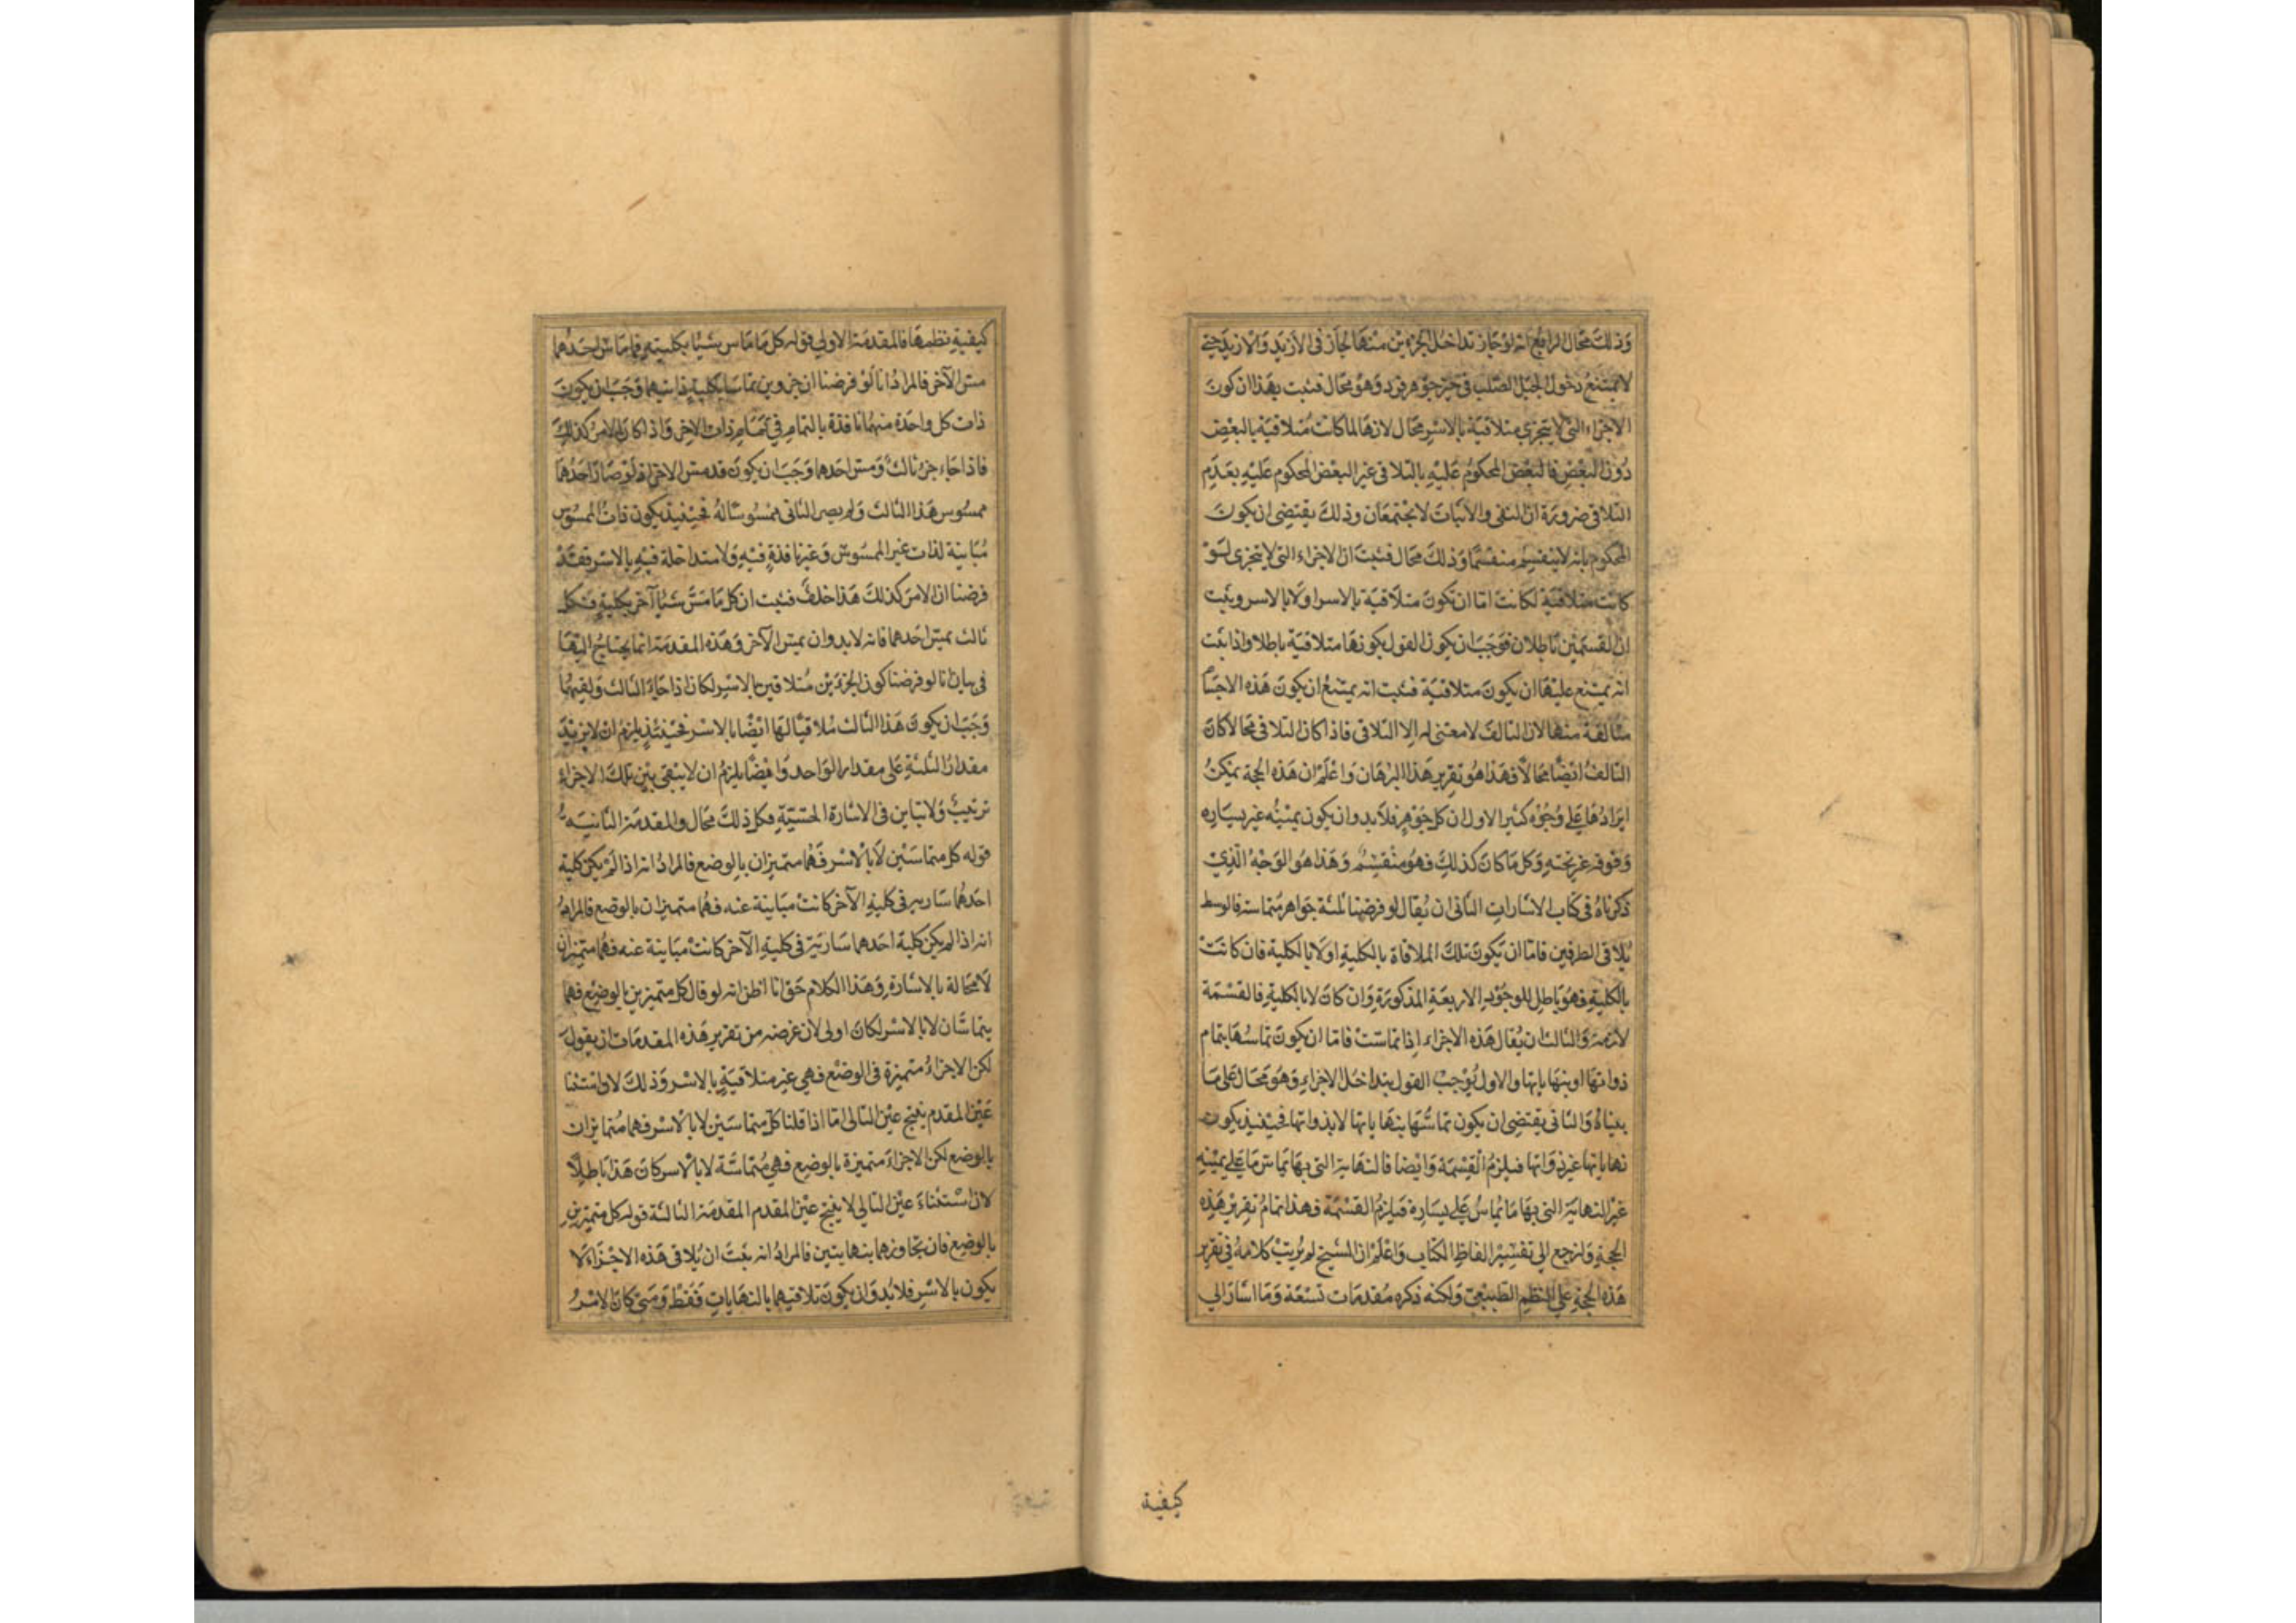 وذلك محال الرابع انه لو جاز تداخل الجزءين منها لجاز فى الازيد والازيد حتى
لا يمتنع دخول الجبل الصلب فى حيز جوهر فرد وهو محال فثبت بهذا ان كون
الاجزاء التى لا يتجزى متلاقية بالاسر محال لانها لما كانت متلاقية بالبعض
دون البعض فالبعض المحكوم عليه بالتلاقى غير البعض المحكوم عليه بعدم
التلاقى ضرورة ان النفى والاثبات لا يجتمعان وذلك يقتضى ان يكون
المحكوم بانه لا ينقسم منقسما وذلك محال فثبت ان الاجزاء التى لا يتجزى لو
كانت متلاقية لكانت اما ان تكون متلاقية بالاسر او لا بالاسر وثبت
ان القسمين باطلان فوجب ان يكون القول بكونها متلاقية باطلا واذا ثبت
انه يمتنع عليها ان يكون متلاقية فثبت انه يمتنع ان يكون هذه الاجسام
متألفة منها لان التالف لا معنى له الا التلاقى فاذا كان التلاقى محالا كان
التالف ايضا محالا فهذا هو تقرير هذا البرهان واعلم ان هذه الحجة يمكن
ايرادها على وجوه كثير الاول ان كل جوهر فلا بد وان يكون يمينه غير يساره
وفوقه غير تحته وكل ما كان كذلك فهو منقسم وهذا هو الوجه الذى
ذكرناه فى كتاب الاشارات الثانى ان يقال لو فرضنا ثلثة جواهر متماسة فالوسط
يلاقى الطرفين فاما ان يكون تلك الملاقاة بالكلية او لا بالكلية فان كانت
بالكلية فهو باطل للوجوه الاربعة المذكورة وان كان لا بالكلية فالقسمة
لازمة والثالث ان يقال هذه الاجزاء اذا تماست فاما ان يكون تماسها بتمام
ذواتها او بنهاياتها والاول يوجب القول بتداخل الاجزاء وهو محال على ما
بيناه والثانى يقتضى ان يكون تماسها بنهاياتها لا بذواتها فحينئذ يكون
نهاياتها غير ذواتها فيلزم القسمة وايضا فالنهاية التى بها تماس ما على يمينه
غير النهاية التى بها ما يماس على يساره فيلزم القسمة فهذا تمام تقرير هذه
الحجة ولنرجع الى تفسير الفاظ الكتاب واعلم ان الشيخ لم يرتب كلامه فى تقرير
هذه الحجة على النظم الطبيعى ولكنه ذكره مقدمات تسعة وما اشار الى
كيفية
كيفية نظمها فالمقدمة الاولى قوله كل ما ماس شيئا بكليته فاماس احدهما
مس الآخر فالمراد انا لو فرضنا ان جزوين تماسا بكلية ذاتيهما وجب ان يكون
ذات كل واحدة منهما نافذة بالتمام فى تمام ذات الاخر واذا كان الامر كذلك
فاذا جاء جزء ثالث ومس احدهما وجب ان يكون قد مس الاخر اذ لو صار احدهما
ممسوس هذا الثالث ولم يصر الثانى ممسوسا له فحينئذ يكون ذات الممسوس
مباينة لذات غير الممسوس وغير نافذة فيه ولا متداخلة فيه بالاسر فقد
فرضنا ان الامر كذلك هذا خلف فثبت ان كل ما مس شيئا آخر بكلية فكل
ثالث يمس احدهما فانه لا بد وان يمس الآخر وهذه المقدمة انما يحتاج اليها
فى بيان انا لو فرضنا كون الجزءين متلاقين بالاسر لكان اذا جاء الثالث ولقيهما
وجب ان يكون هذا الثالث ملاقيا لها ايضا بالاسر فحينئذ يلزم ان لا يزيد
مقدار الثلثة على مقدار الواحد وايضا يلزم ان لا يبقى بين تلك الاجزاء
ترتيب ولا تباين فى الاشارة الحسية فكل ذلك محال والمقدمة الثانية
قوله كل متماسين لا بالاسر فهما متميزان بالوضع فالمراد انه اذا لم يكن كلية
احدهما سارية فى كلية الآخر كانت مباينة عنه فهما متميزان بالوضع فالمراد
انه اذا لم يكن كلية احدهما سارية فى كلية الآخر كانت مباينة عنه فهما متميزان
لا محالة بالاشارة وهذا الكلام حق انا اظن انه لو قال كل متميزين بالوضع فهما
يتماسان لا بالاسر لكان اولى لان غرضه من تقرير هذه المقدمات ان يقول
لكن الاجزاء متميزة فى الوضع فهى غير متلاقية بالاسر وذلك لان استثنا
عين المقدم ينتج عين التالى اما اذا قلنا كل متماسين لا بالاسر فهما متمايزان
بالوضع لكن الاجزاء متميزة بالوضع فهى متماسة لا بالاسر كان هذا باطلا
لان استثناء عين التالى لا ينتج عين المقدم المقدمة الثالثة قوله كل متميزين
بالوضع فان تجاوزهما بنهايتين فالمراد انه ثبت ان يلاقى هذه الاجزاء لا
يكون بالاسر فلا بد وان يكون تلاقيهما بالنهايات فقط ومتى كان الامر